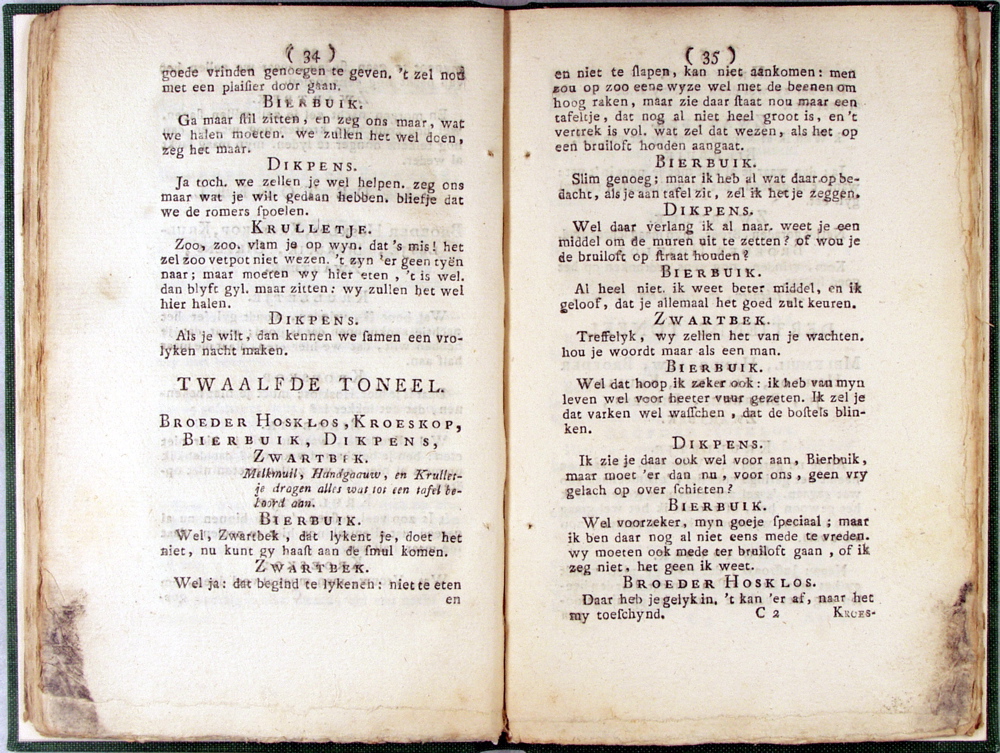 ( 34 )
goede vrinden genoegen te geven. 't zel nou
met een plaiſier door gaan.
BIERBUIK.
Ga maar ſtil zitten, en zeg ons maar, wat
we halen moeten. we zullen het wel doen,
zeg het maar.
DIKPENS.
Ja toch. we zellen je wel helpen. zeg ons
maar wat je wilt gedaan hebben. bliefje dat
we de romers ſpoelen.
KRULLETJE.
Zoo, zoo. vlam je op wyn. dat 's mis! het
zel zoo vetpot niet wezen. 't zyn 'er geen tyën
naar; maar moeten wy hier eten, 't is wel.
dan blyft gyl. maar zitten: wy zullen het wel
hier halen.
DIKPENS.
Als je wilt, dan kennen we ſamen een vro-
lyken nacht maken.
TWAALFDE TONEEL.
BROEDER HOSKLOS, KROESKOP,
BIERBUIK, DIKPENS,
ZWARTBEK.
Melkmuil, Handgaauw, en Krullet-
je dragen alles wat tot een tafel be-
hoord aan.
BIERBUIK.
Wel, Zwartbek, dat lykent je, doet het
niet, nu kunt gy haaſt aan de ſmul komen.
ZWARTBEK.
Wel ja: dat begind te lykenen: niet te eten
en
( 35 )
en niet te ſlapen, kan niet aankomen: men
zou op zoo eene wyze wel met de beenen om
hoog raken, maar zie daar ſtaat nou maar een
tafeltje, dat nog al niet heel groot is, en 't
vertrek is vol. wat zel dat wezen, als het op
een bruiloft houden aangaat.
BIERBUIK.
Slim genoeg; maar ik heb al wat daar op be-
dacht, als je aan tafel zit, zel ik het je zeggen.
DIKPENS.
Wel daar verlang ik al naar. weet je een
middel om de muren uit te zetten? of wou je
de bruiloft op ſtraat houden?
BIERBUIK.
Al heel niet. ik weet beter middel, en ik
geloof, dat je allemaal het goed zult keuren.
ZWARTBEK.
Treffelyk, wy zellen het van je wachten.
hou je woordt maar als een man.
BIERBUIK.
Wel dat hoop ik zeker ook: ik heb van myn
leven wel voor heeter vuur gezeten. Ik zel je
dat varken wel waſſchen, dat de boſtels blin-
ken.
DIKPENS.
Ik zie je daar ook wel voor aan, Bierbuik,
maar moet 'er dan nu, voor ons, geen vry
gelach op over ſchieten?
BIERBUIK.
Wel voorzeker, myn goeje ſpeciaal; maar
ik ben daar nog al niet eens mede te vreden.
wy moeten ook mede ter bruiloft gaan, of ik
zeg niet, het geen ik weet.
BROEDER HOSKLOS.
Daar heb je gelyk in. 't kan 'er af, naar het
my toeſchynd. C 2 KROES-